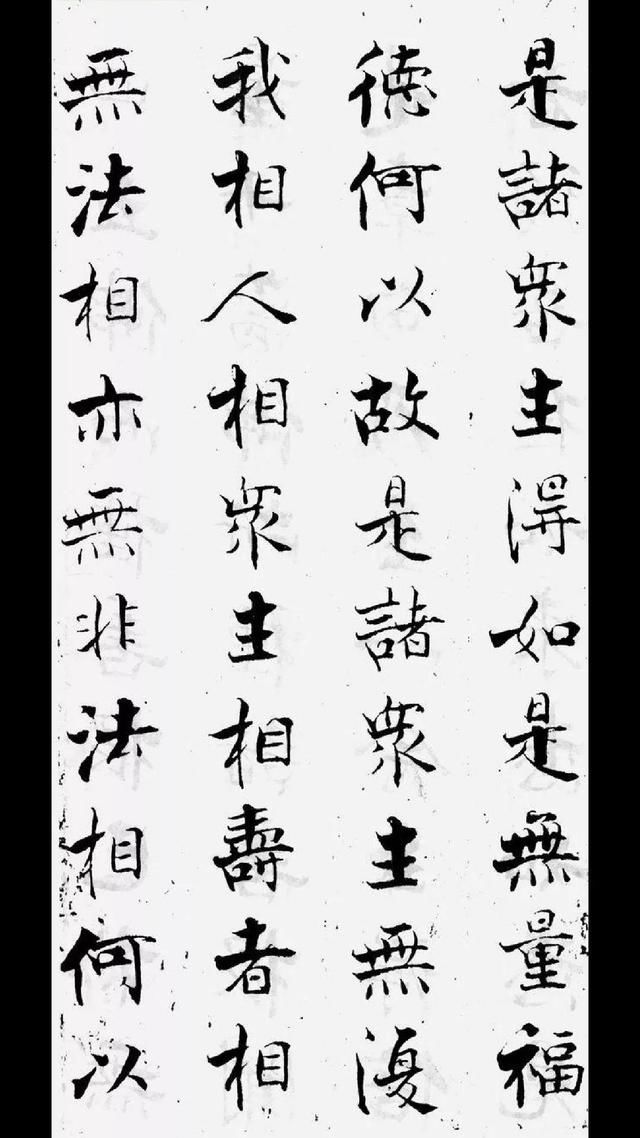 是諸衆生得如是無量福
德何以故是諸衆生無復
我相人相衆生相壽者相
無法相亦無非法相何以